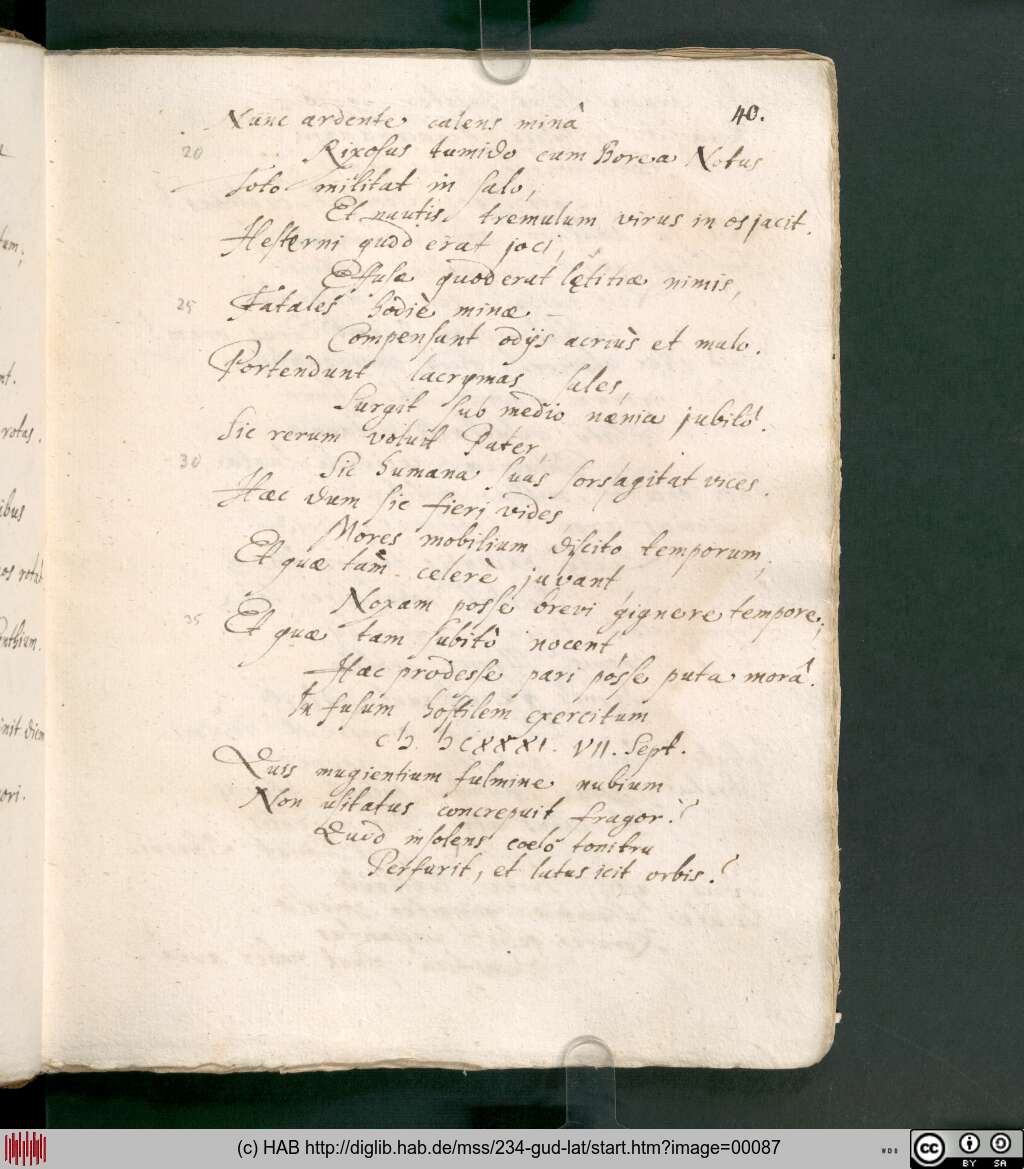 40.
Nunc ardente calens minâ
20 Rixosus tumido cum Borea Notus
Toto militat in salo,
Et nautis tremulum virus in os jacit.
Hesterni quod erat joci,
Effusæ quod erat lętitiæ nimis,
25 Fatales hodiè minæ
Compensant odijs acriùs et malo.
Portendunt lacrymas sales,
Surgit sub medio nænia jubilo.
Sic rerum voluit Pater,
30 Sic humana suas sors agitat vices.
Hæc dum sic fieri vides
Mores mobilium discito temporum,
Et quæ tam celerè juvant
Noxam posse brevi gignere tempore;
35 Et quæ tam subitò nocent
Hæc prodesse pari posse puta morâ.
In fusum hostilem exercitum
VII. Sept.
Quis mugientium fulmine nubium
Non usitatus concrepuit fragor?
Quod insolens coelo tonitru
Perfurit, et latus icit orbis?
tum;
nt.
rotas.
ibus
os rotat
init diem
ori.
(c) HAB http://diglib.hab.de/mss/234-gud-lat/start.htm?image=00087
cc BY SA